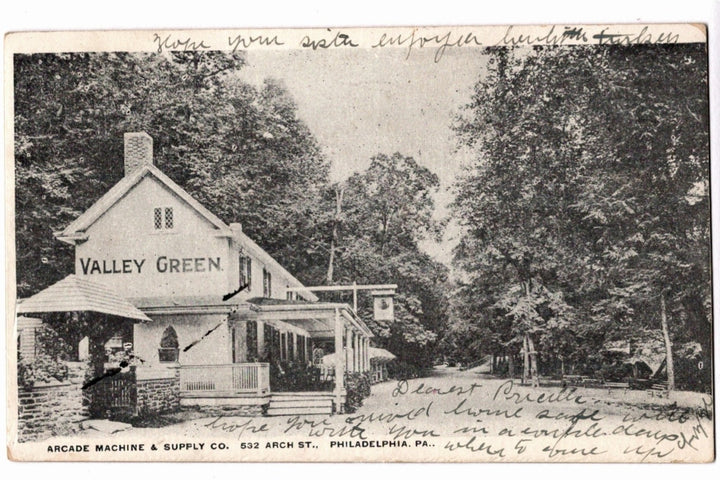 Hope your sister enjoyed
VALLEY GREEN.
Dearest
hope you arrived home safe
with you in a couple days
when to come up
ARCADE MACHINE & SUPPLY CO. 532 ARCH ST., PHILADELPHIA. PA..